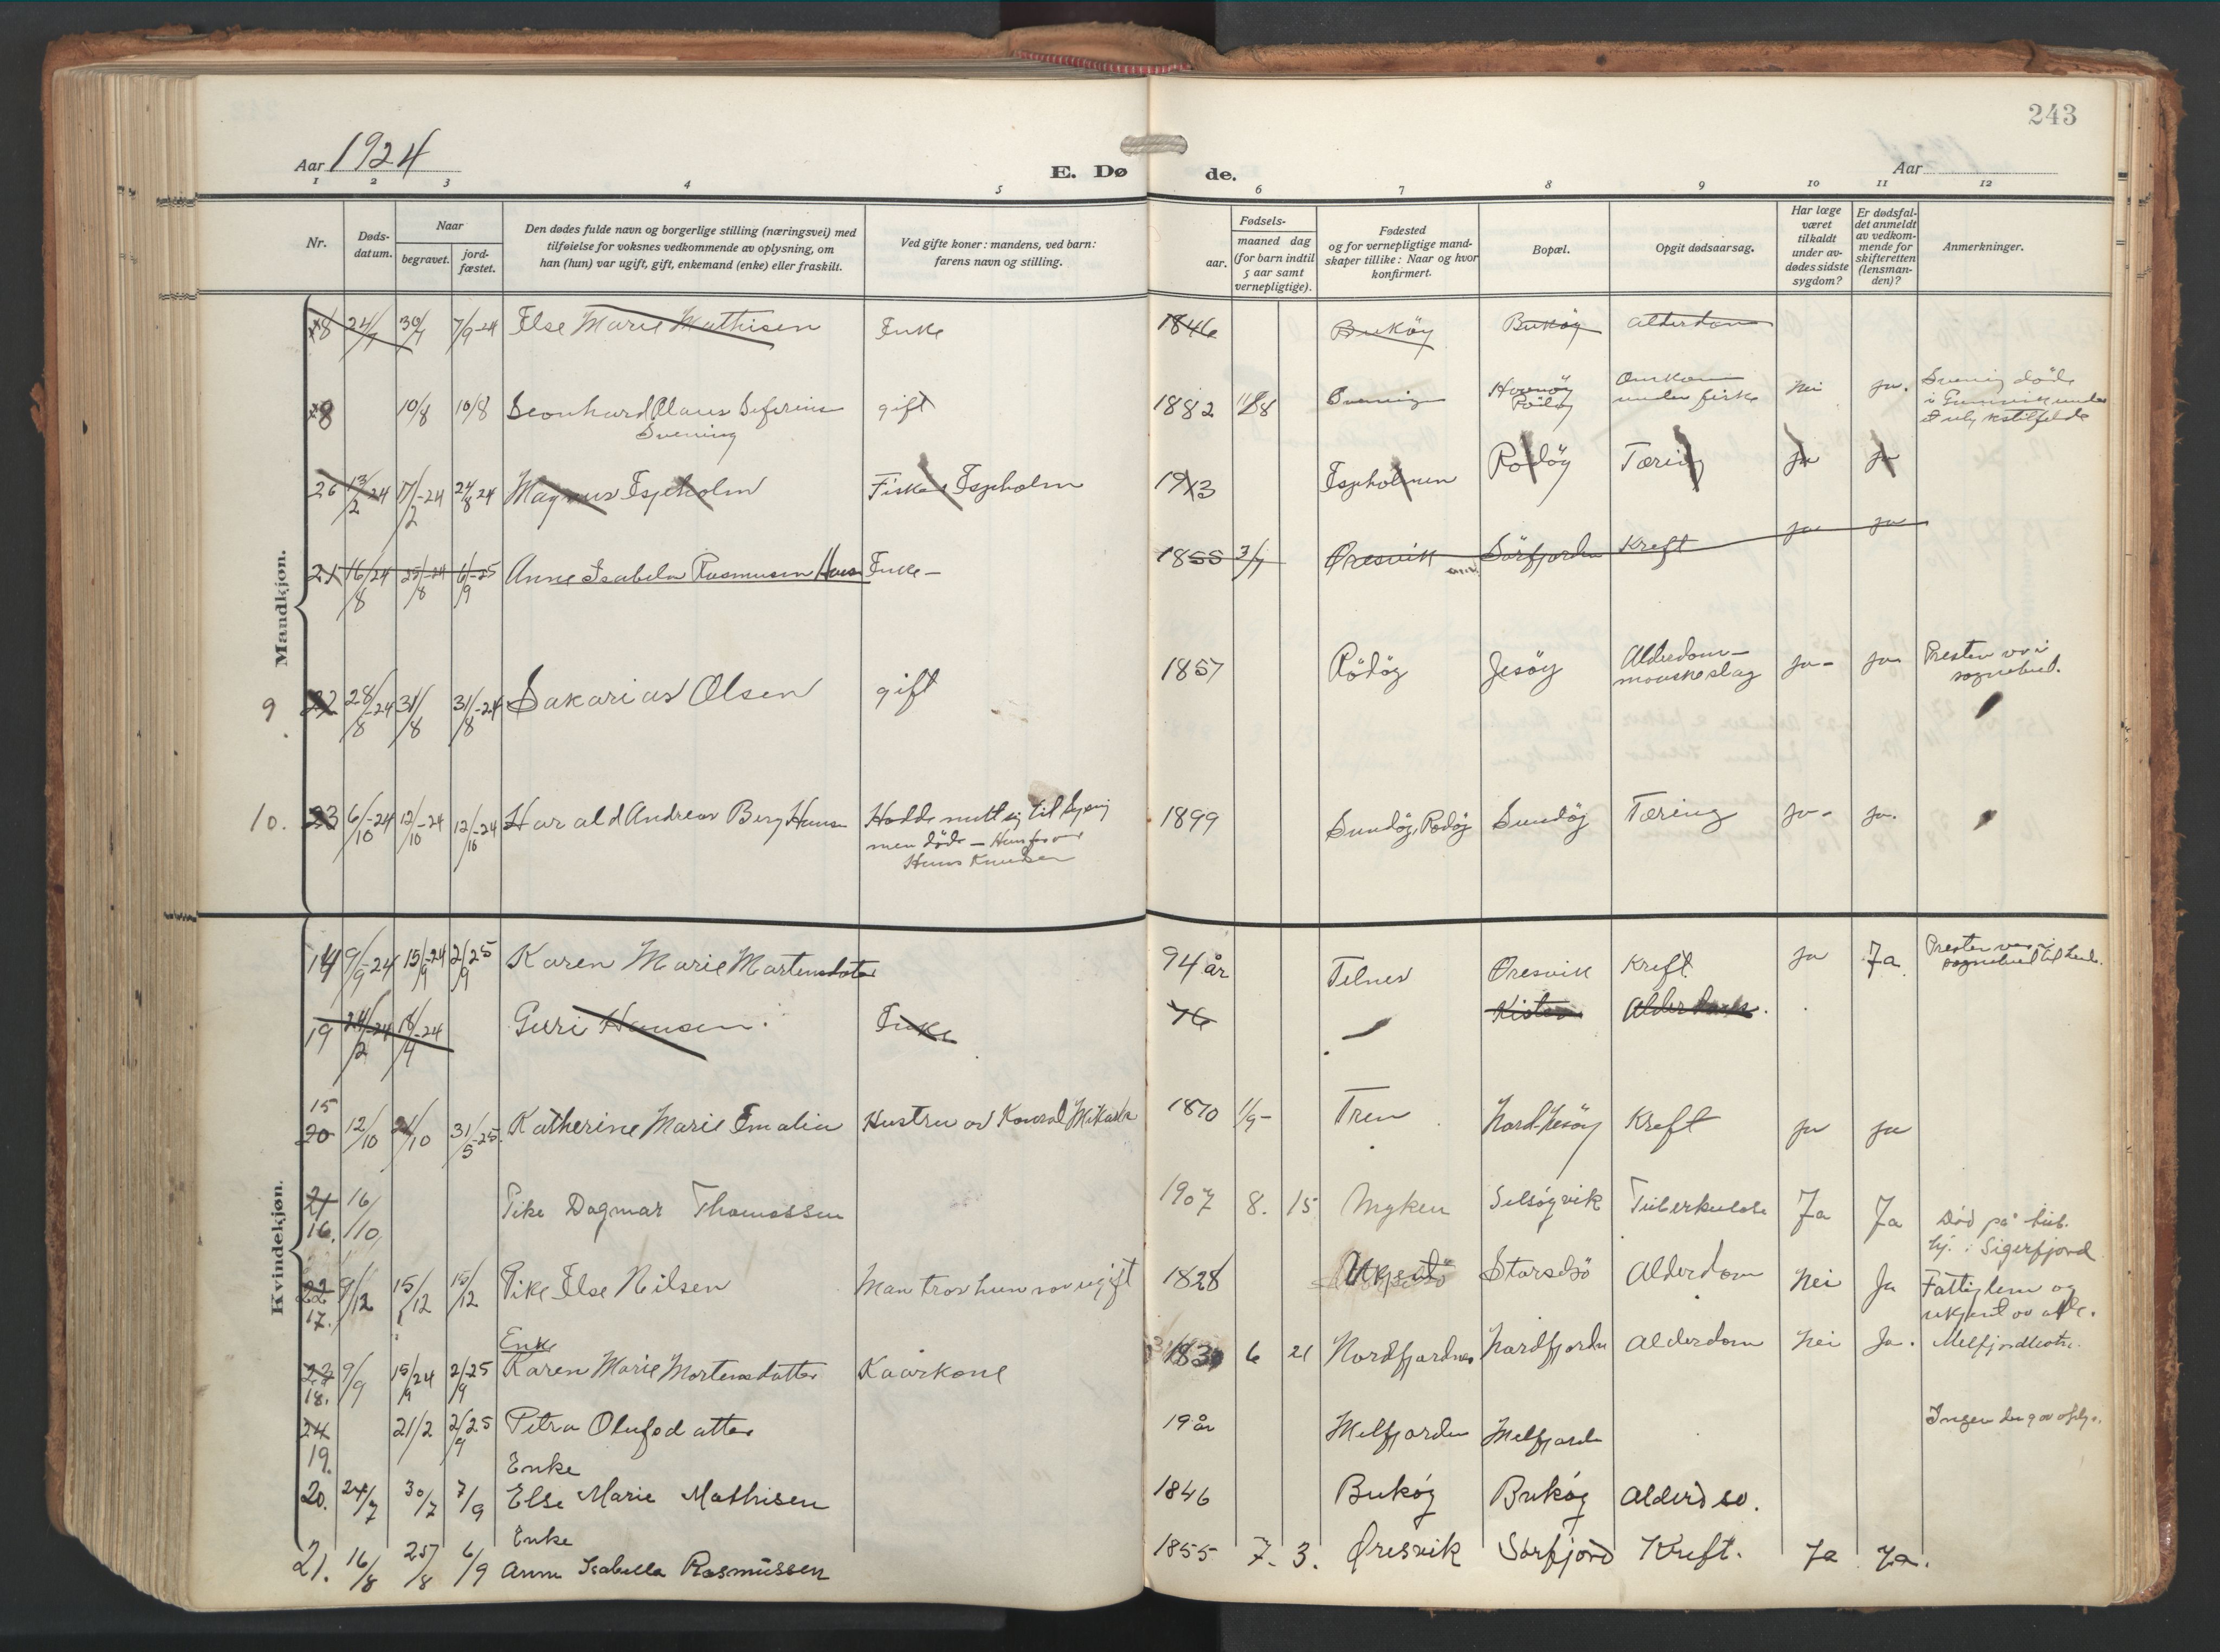 243
Aar 1924
E. Dø de.
Aar
1 2 3 4 5 6 7 8 9 10 11 12
Nr.
Døds-
datum.
Naar
begravet.
jord-
fæstet.
Den dødes fulde navn og borgerlige stilling (næringsvei) med
tilføielse for voksnes vedkommende av oplysning, om
han (hun) var ugift, gift, enkemand (enke) eller fraskilt.
Ved gifte koner: mandens, ved barn:
farens navn og stilling.
Fødsels-
aar.
maaned dag
(for barn indtil
5 aar samt
vernepligtige).
Fødested
og for vernepligtige mand-
skaper tillike: Naar og hvor
konfirmert.
Bopæl.
Opgit dødsaarsag.
Har læge
været
tilkaldt
under av-
dødes sidste
sygdom?
Er dødsfal-
det anmeldt
av vedkom-
mende for
skifteretten
(lensman-
den)?
Anmerkninger.
Mandkjøn.
18 24/7 30/7 7/9-24 Else Marie Mathisen Enke 1846 Buköy Buköy Alderdom
8 10/8 10/8 Leonhard Olaus Seferius gift 1882 Omkom nei ja. Svenig døde
Svening under fiske
26 13/2 24 17/2-24 24/8 24 Magnus Espeholm Fisker Espeholm 1913 Espeholmen Rödöy Tæring ja ja
21 16/8 24 25/8-24 6/9-25 Anne Isabela Rasmusen Enke- 1855 3/7 Øresvik Sörfjorden Kreft ja ja
9 22 28/8-24 31/8 31/8-24 Sakarias Olsen gift 1857 Rödöy Jesöy Alderdom- ja- ja Presten var i
sognebud.
10. 23 6/10-24 12/10-24 12/10-24 Harald Andreas Berg Hansen Hadde 1899 Sundöy, Rödöy Sundöy Tæring ja- ja.
men døde -
Hans Knudsen
Kvindekjøn.
14 9/9-24 15/9-24 2/9 25 Karen Marie Martensdatter 94 år Telnes Øresvik Kreft ja Ja Presten var i
sognebud til hende.
19 24/2-24 18/4-24 Guri Hansen. Enke 76 Alderdom.
15
20 12/10 21/10 31/5-25 Katherine Marie Emalia Hustru av Konrad 1870 1/9- Tren Nord-Nesöy Kreft ja ja
21 16/10 Pike Dagmar Thomassen 1907 8. 15 Myken Selsøyvik Tuberkulose Ja Ja Død på tub.
16. hj. i Sigerfjord
22 9/12 15/12 15/12 Pike Else Nilsen Man tror hun var ugift 1828 Storselsö Alderdom Nei Ja Fattiglem og
17. ukjent av alle.
Enke
23 9/9 15/9 24 2/9-25 Karen Marie Mortensdatter Kaarkone 6 21 Nordfjordnes Nordfjorden Alderdom Nei Ja.
18.
24 21/2 2/9 25 Petra Olufsdatter 19 år Melfjorden Melfjorden
19.
Enke
20. 24/7 30/7 7/9 Else Marie Mathisen 1846 Bukøy Bukøy Alderd so.
Enke
21. 16/8 25/8 6/9 Anne Isabella Rasmussen 1855 7. 3. Øresvik Sørfjord Kreft. Ja Ja.